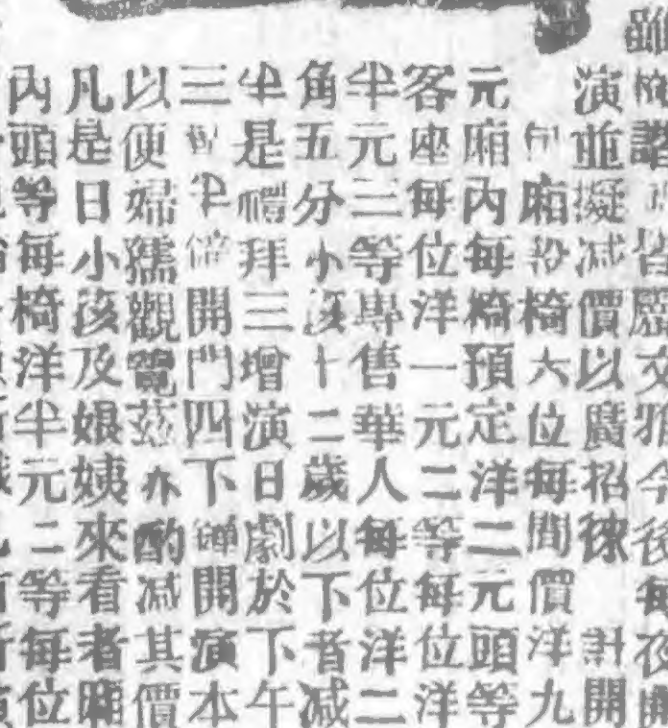 雖諧皆歷文雅今後每夜
演並擬減價以廣招徠 計開
每廂設椅六位每間價洋九
元廂內每椅預定洋二元頭等
客座每位洋一元二等每位洋
半元三等專售華人每位洋二
角五分小孩十二歲以下者減
半是禮拜三增演日劇於下午
三點半鐘開門四下鐘開演本
以便婦孺觀覽茲亦酌減其價
凡是日小孩及娘姨來看者廂
內頭等每椅洋半元二等每位